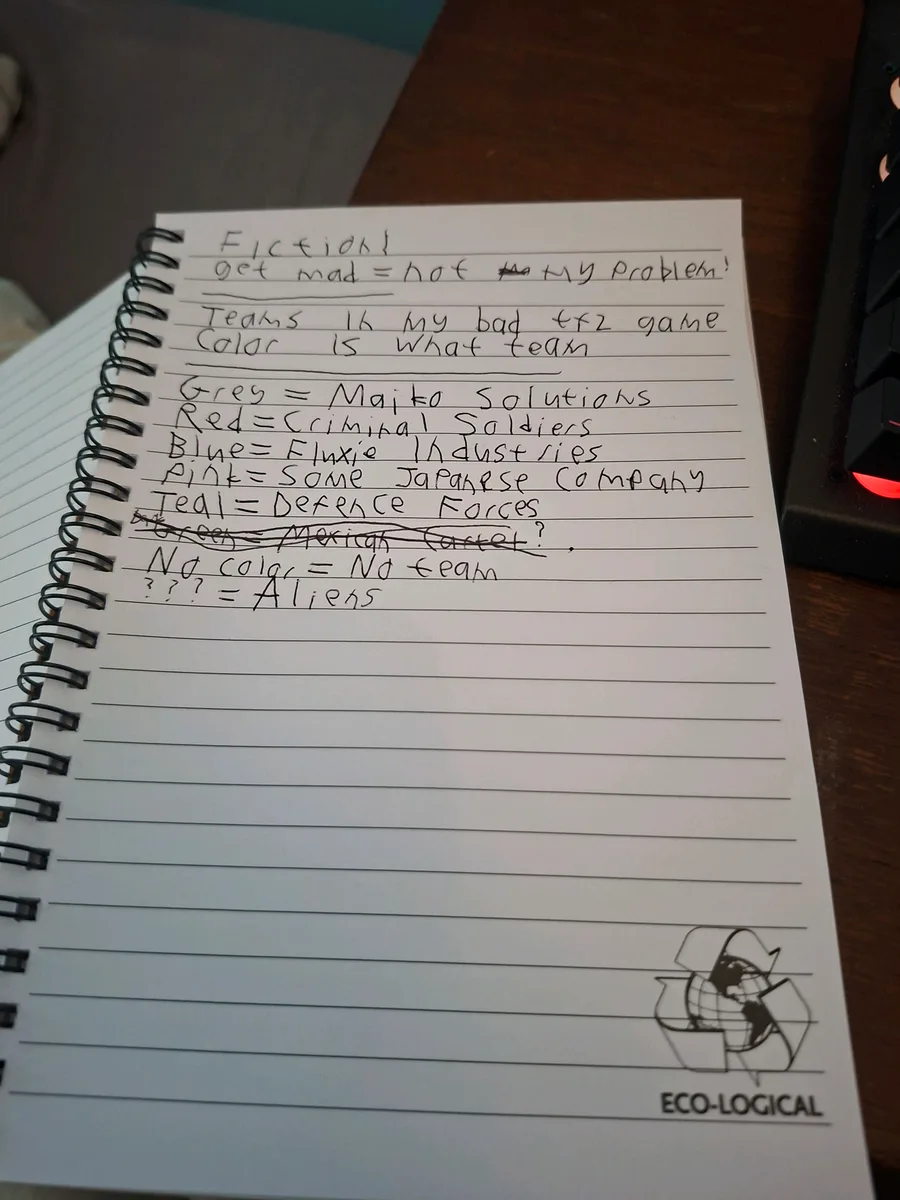 Fiction!
get mad = not my problem!
Teams in my bad tf2 game
Color is what team
Grey = Majko Solutions
Red = Criminal Soldiers
Blue = Fluxie Industries
Pink = Some Japanese Company
Teal = Defence Forces
Green = Mexican Cartel ?
No color = No team
??? = Aliens
ECO-LOGICAL